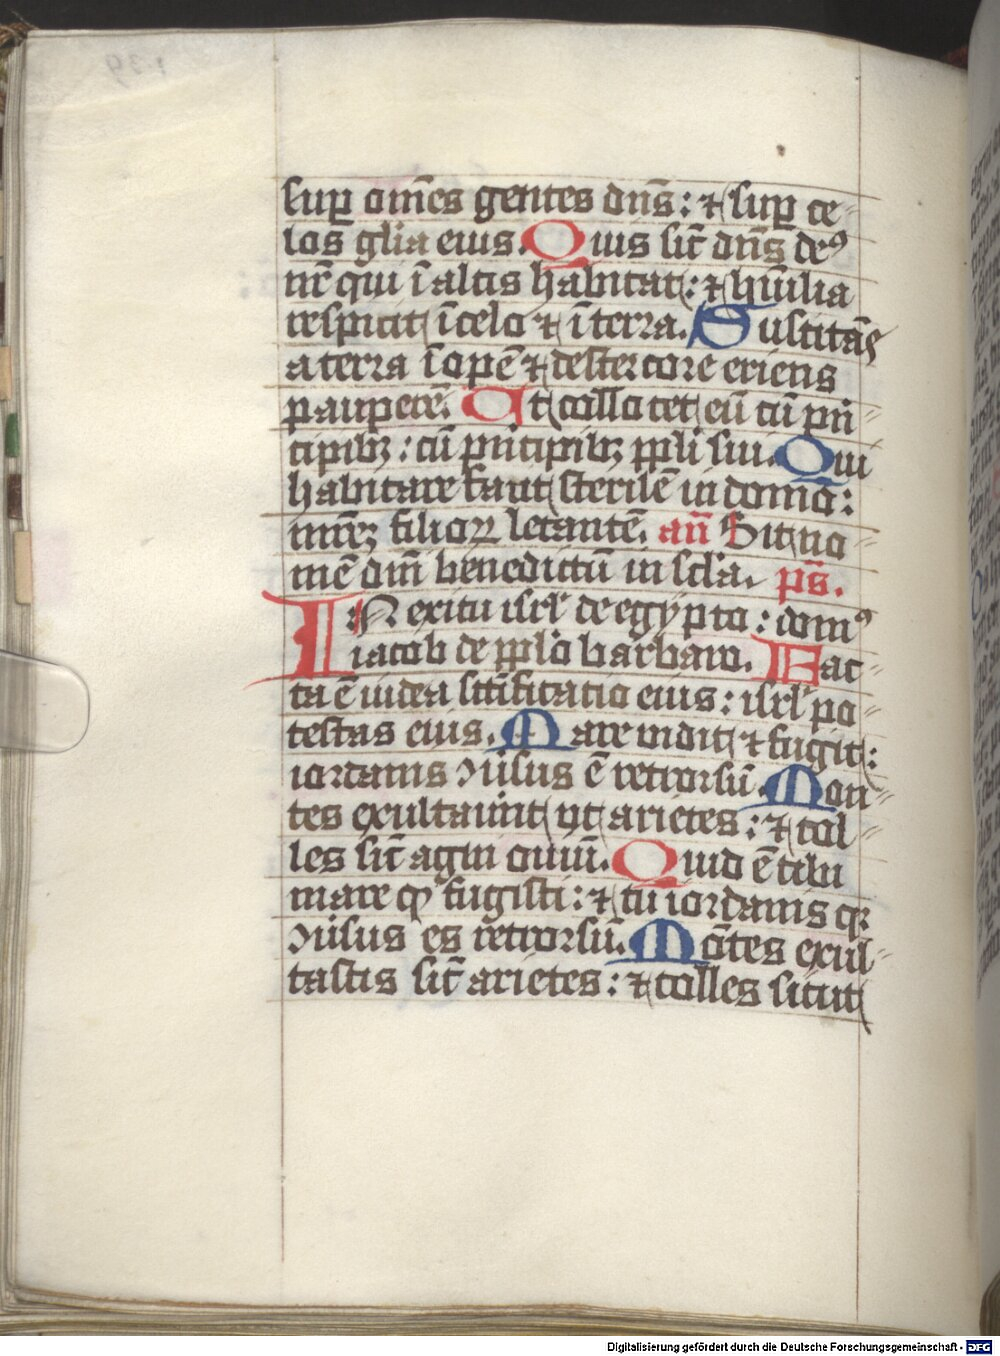 sup om̄es gentes dn̄s: ⁊ sup ce
los gl̄ia eius. Quis sic̄ dn̄s deꝰ
nr̄ qui ī altis habitat: ⁊ hūilia
respicit ī celo ⁊ ī terra. Suscitās
a terra īopē ⁊ de stercore erigens
pauperē. Ut collocet eū cū prī
cipibꝫ: cū prīcipibꝫ pp̄li sui. Qui
habitare facit sterilē in domo:
mr̄eꝫ filioꝝ letantē. an̄ Sit no
mē dn̄i benedictū in sc̄la. ps̄.
IN exitu isrl̄ de egypto: domꝰ
iacob de pp̄lo barbaro. Fac
ta ē iudea sc̄ificatio eius: isrl̄ po
testas eius. Mare vidit ⁊ fugit:
iordanis ꝯuersus ē retrorsū. Mon
tes exultauer̄t ut arietes: ⁊ col
les sic̄ agni ouiū. Quid ē tibi
mare qͥ fugisti: ⁊ tu iordanis qꝛ
ꝯuersus es retrorsū. Mōtes exul
tastis sic̄ arietes: ⁊ colles sicut
Digitalisierung gefördert durch die Deutsche Forschungsgemeinschaft - DFG